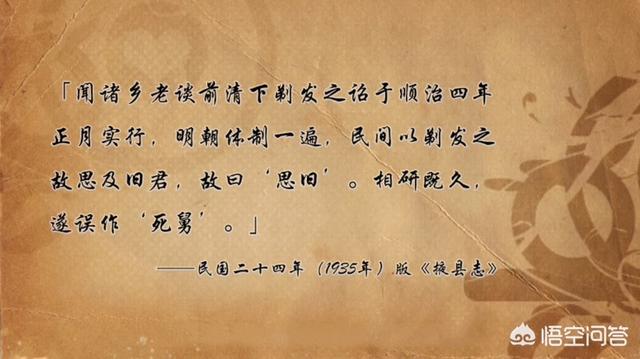 「闻诸乡老谈前清下剃发之诏于顺治四年
正月实行，明朝体制一遍，民间以剃发之
故思及旧君，故曰‘思旧’。相研既久，
遂误作‘死舅’。」
——民国二十四年（1935年）版《掖县志》
悟空问答